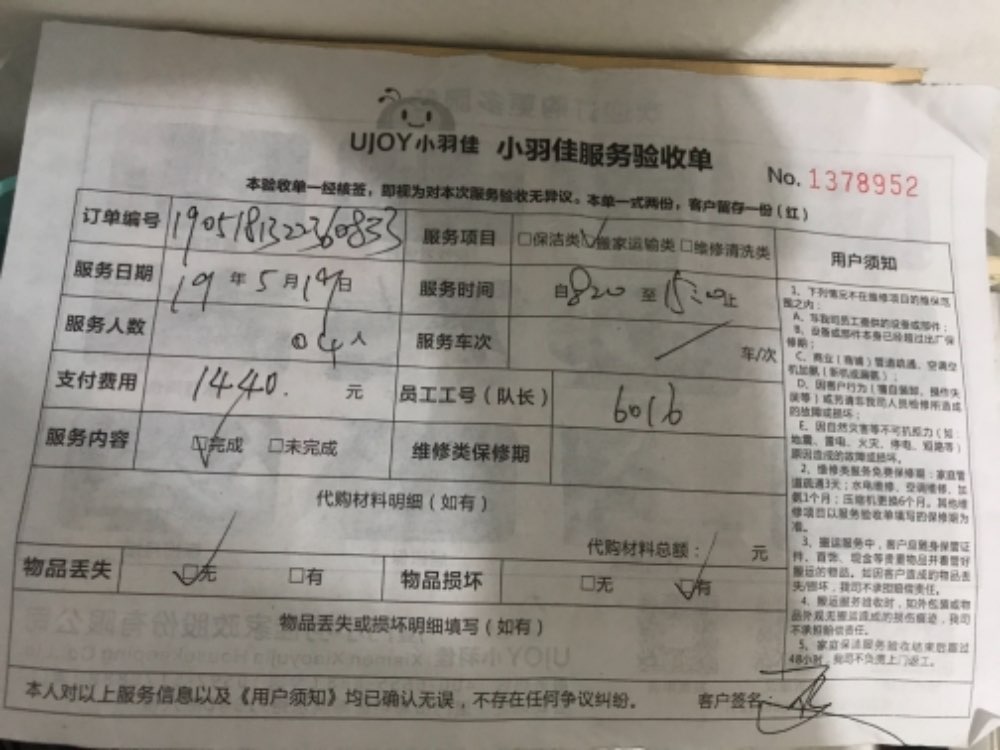 UJOY小羽佳 小羽佳服务验收单
No. 1378952
本验收单一经核签，即视为对本次服务验收无异议。本单一式两份，客户留存一份（红）
订单编号 190518132260833 服务项目 □保洁类 ☑搬家运输类 □维修清洗类
服务日期 19年5月19日 服务时间 自8:20至15:20止
服务人数 04人 服务车次 车/次
支付费用 1440.元 员工工号（队长） 6016
服务内容 ☑完成 □未完成 维修类保修期
代购材料明细（如有）
代购材料总额： 元
物品丢失 ☑无 □有 物品损坏 □无 ☑有
物品丢失或损坏明细填写（如有）
本人对以上服务信息以及《用户须知》均已确认无误，不存在任何争议纠纷。 客户签名：
用户须知
1、下列情况不在维修项目的维保范
围之内：
A、非我司员工提供的设备或部件；
B、设备或部件本身已经超过出厂保
修期；
C、商业（商铺）管道疏通、空调
D、因客户行为（擅自装卸、操作失
误等）或另请非我司人员检修所造成
的故障或损坏；
E、因自然灾害等不可抗拒力（如：
地震、雷电、火灾、停电、短路等）
原因造成的故障或损坏。
2、维修类服务免费保修期：家庭管
道疏通3天；水电维修、空调维修、加
氨1个月；压缩机更换6个月。其他维
修项目以服务验收单填写的保修期为
准。
3、搬运服务中，客户应随身保管证
件、首饰、现金等贵重物品并看管好
搬运的物品。如因客户造成的物品丢
失/损坏，我司不承担赔偿责任。
4、搬运服务验收时，如外包装或物
品外观无搬运造成的损伤痕迹，我司
不承担赔偿责任。
5、家庭保洁服务验收结束后超过
48小时，我司不负责上门返工。